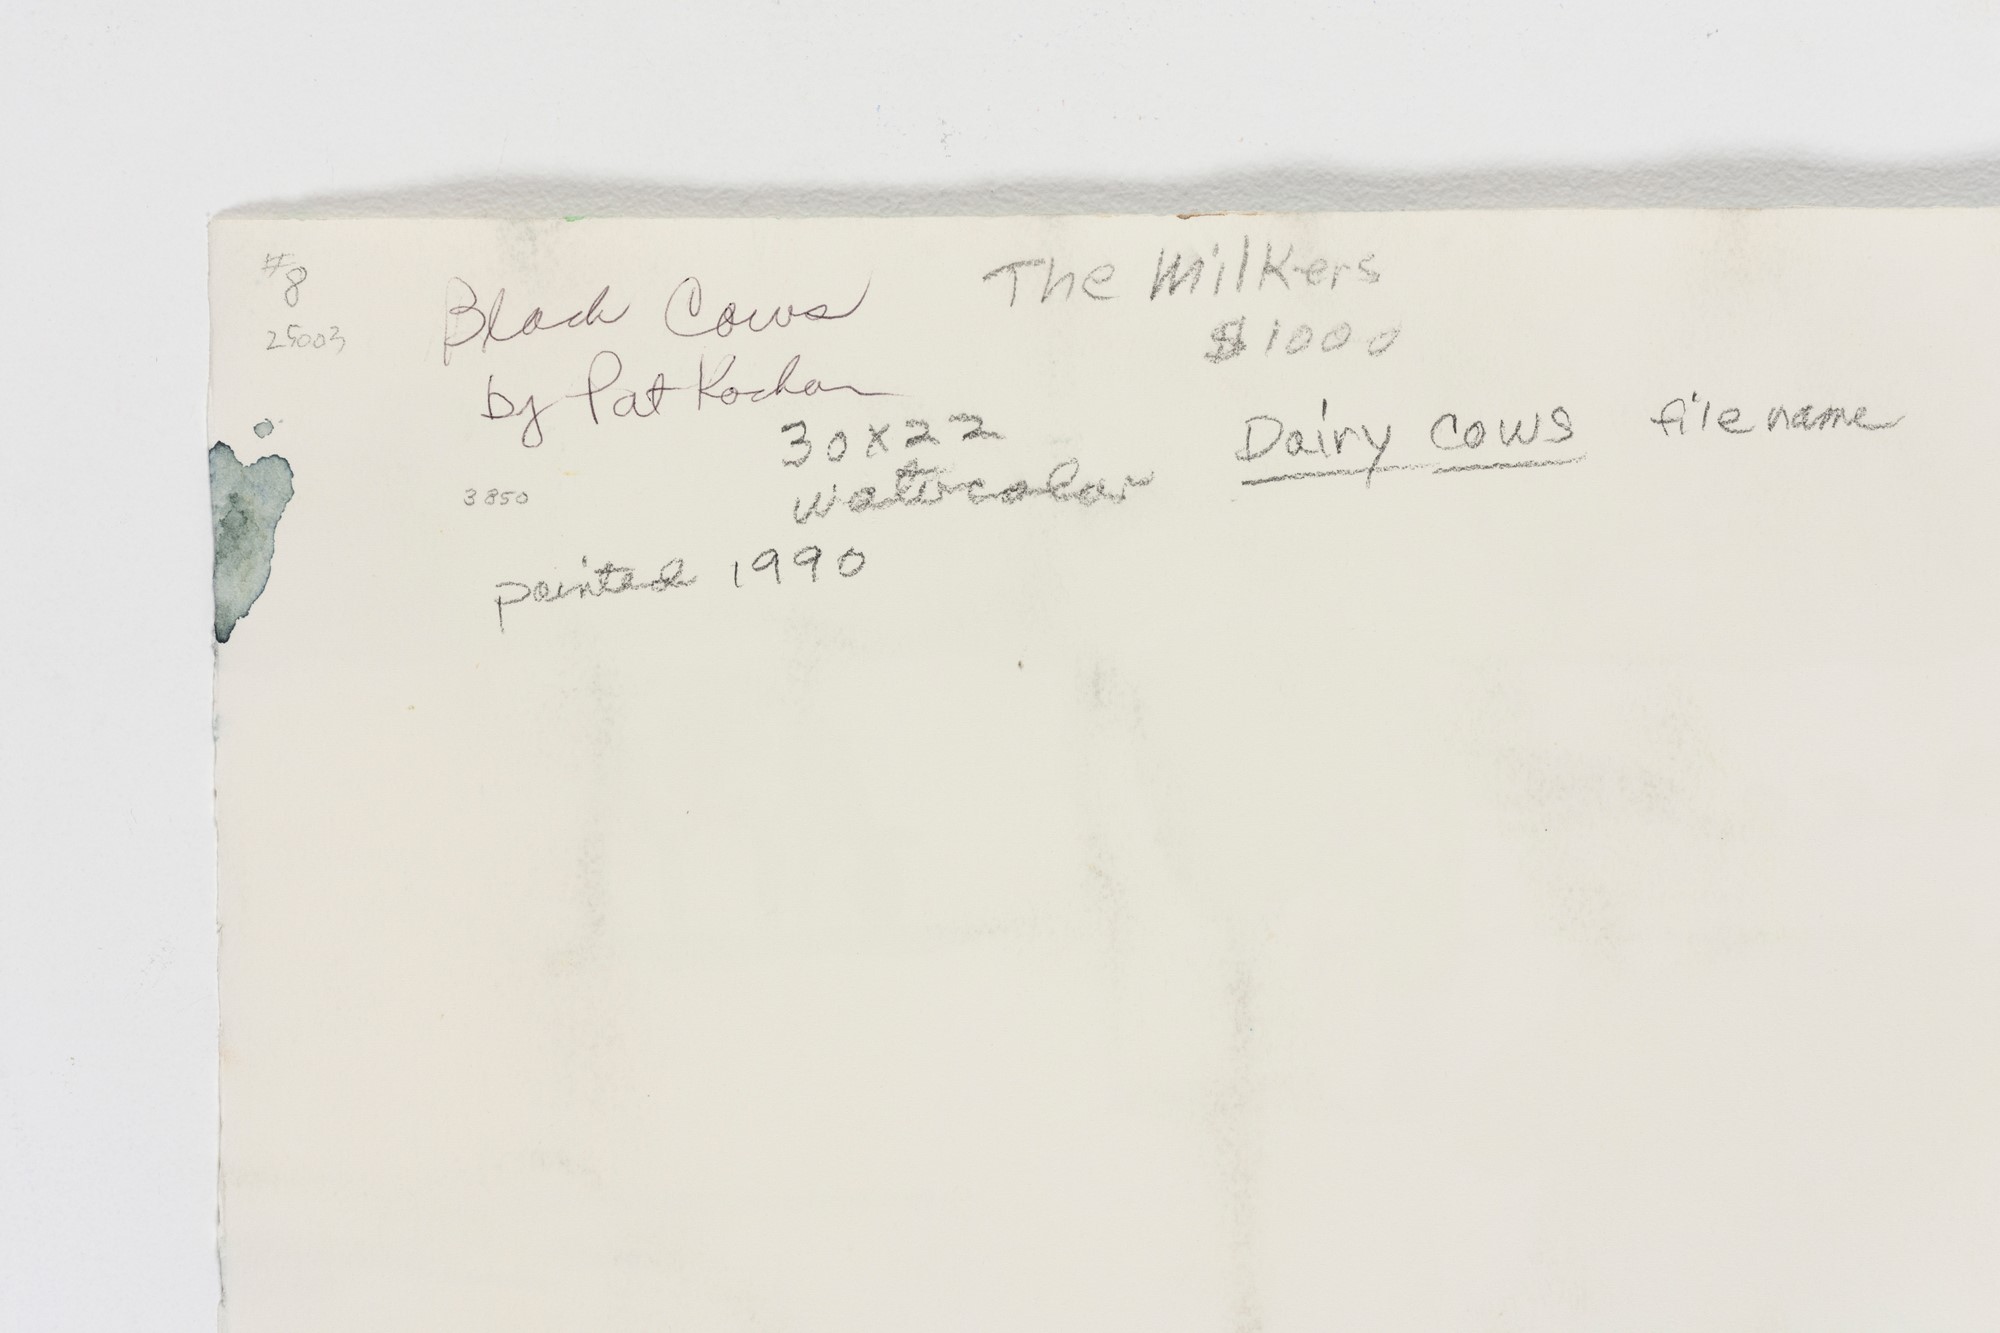 #8
25003
Black Cows
by Pat Kochan
The Milkers
$1000
30x22
watercolor
Dairy Cows filename
3850
painted 1990